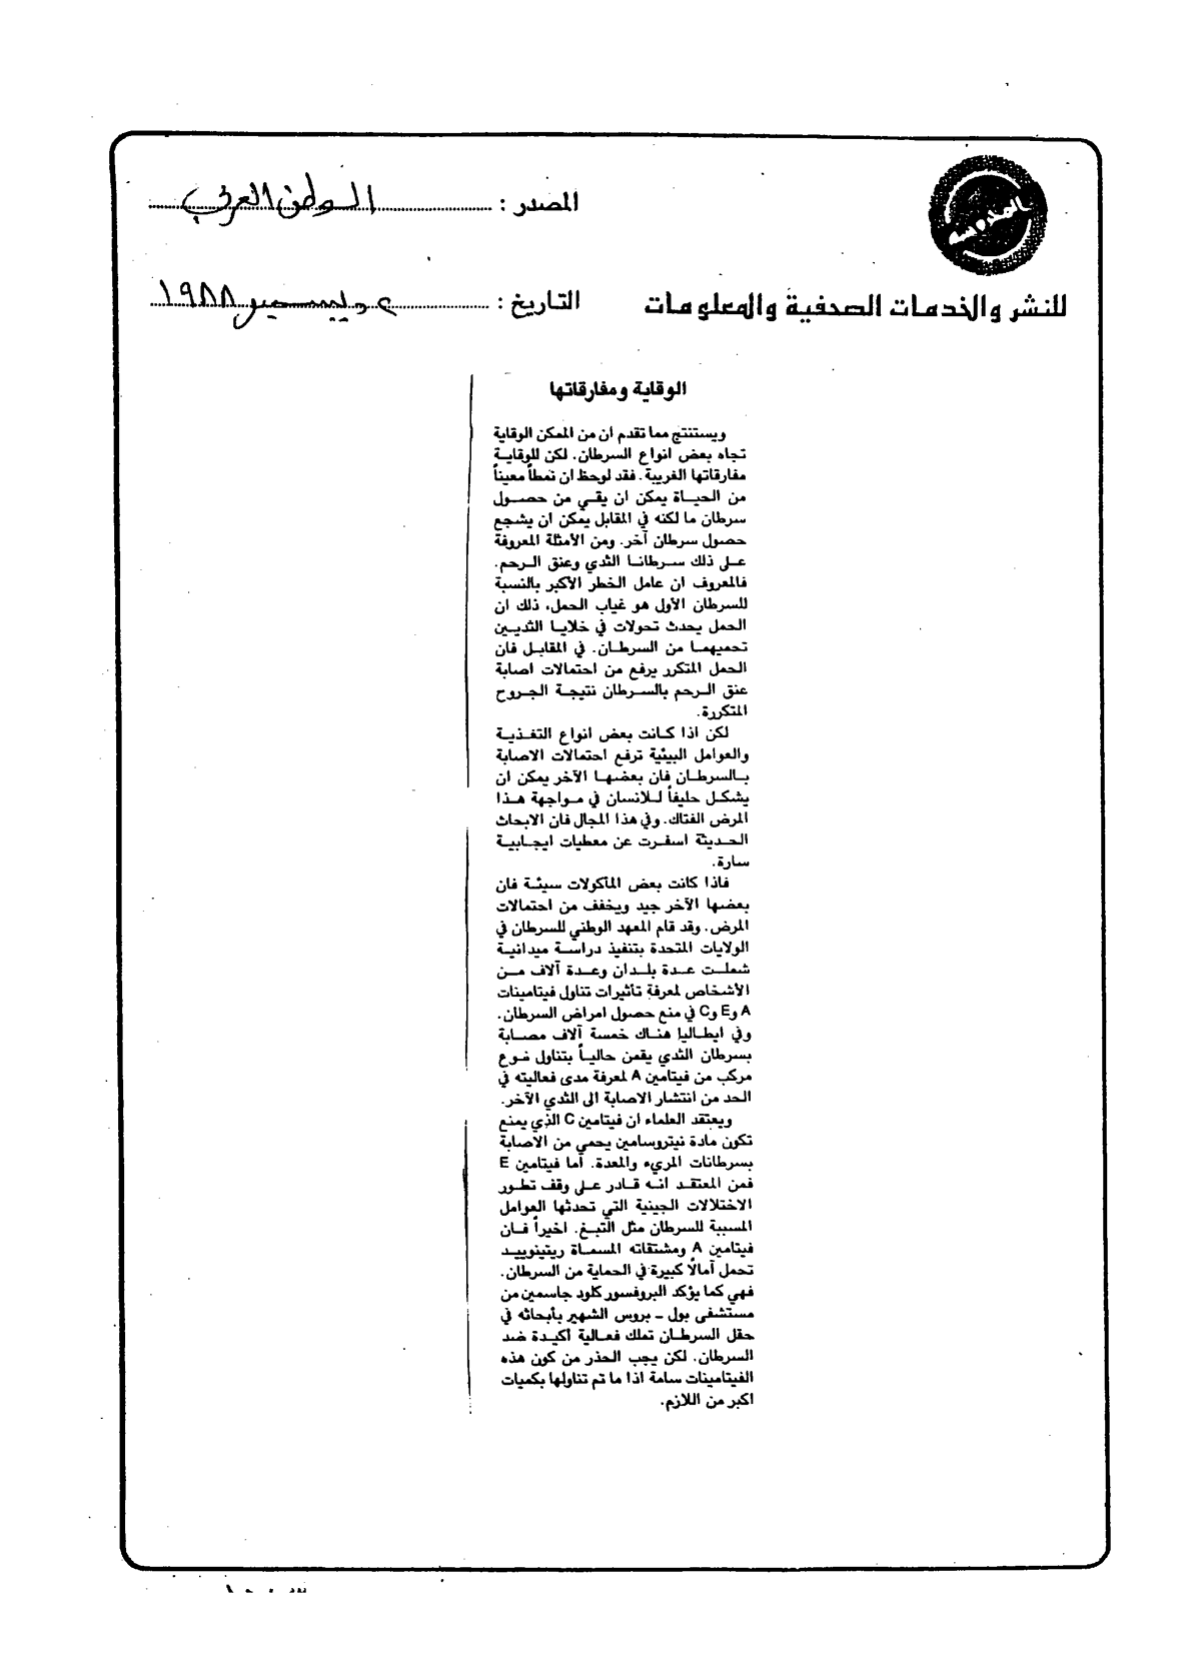 المصدر : الوطن العربي
للنشر والخدمات الصحفية والمعلومات
التاريخ : ٢ ديسمبر ١٩٨٨
الوقاية ومفارقاتها
ويستنتج مما تقدم ان من الممكن الوقاية
تجاه بعض انواع السرطان. لكن للوقاية
مفارقاتها الغريبة. فقد لوحظ ان نمطاً معيناً
من الحياة يمكن ان يقي من حصول
سرطان ما لكنه في المقابل يمكن ان يشجع
حصول سرطان آخر. ومن الأمثلة المعروفة
على ذلك سرطانا الثدي وعنق الرحم.
فالمعروف ان عامل الخطر الأكبر بالنسبة
للسرطان الأول هو غياب الحمل، ذلك ان
الحمل يحدث تحولات في خلايا الثديين
تحميهما من السرطان. في المقابل فان
الحمل المتكرر يرفع من احتمالات اصابة
عنق الرحم بالسرطان نتيجة الجروح
المتكررة.
لكن اذا كانت بعض انواع التغذية
والعوامل البيئية ترفع احتمالات الاصابة
بالسرطان فان بعضها الآخر يمكن ان
يشكل حليفاً للانسان في مواجهة هذا
المرض الفتاك. وفي هذا المجال فان الابحاث
الحديثة اسفرت عن معطيات ايجابية
سارة.
فاذا كانت بعض المأكولات سيئة فان
بعضها الآخر جيد ويخفف من احتمالات
المرض. وقد قام المعهد الوطني للسرطان في
الولايات المتحدة بتنفيذ دراسة ميدانية
شملت عدة بلدان وعدة آلاف من
الأشخاص لمعرفة تأثيرات تناول فيتامينات
A وE وC في منع حصول امراض السرطان.
وفي ايطاليا هناك خمسة آلاف مصابة
بسرطان الثدي يقمن حالياً بتناول نوع
مركب من فيتامين A لمعرفة مدى فعاليته في
الحد من انتشار الاصابة الى الثدي الآخر.
ويعتقد العلماء ان فيتامين C الذي يمنع
تكون مادة نيتروسامين يحمي من الاصابة
بسرطانات المريء والمعدة. أما فيتامين E
فمن المعتقد انه قادر على وقف تطور
الاختلالات الجينية التي تحدثها العوامل
المسببة للسرطان مثل التبغ. اخيراً فان
فيتامين A ومشتقاته المسماة ريتينوييد
تحمل آمالاً كبيرة في الحماية من السرطان.
فهي كما يؤكد البروفسور كلود جاسمين من
مستشفى بول ـ بروس الشهير بأبحاثه في
حقل السرطان تملك فعالية أكيدة ضد
السرطان. لكن يجب الحذر من كون هذه
الفيتامينات سامة اذا ما تم تناولها بكميات
اكبر من اللازم.